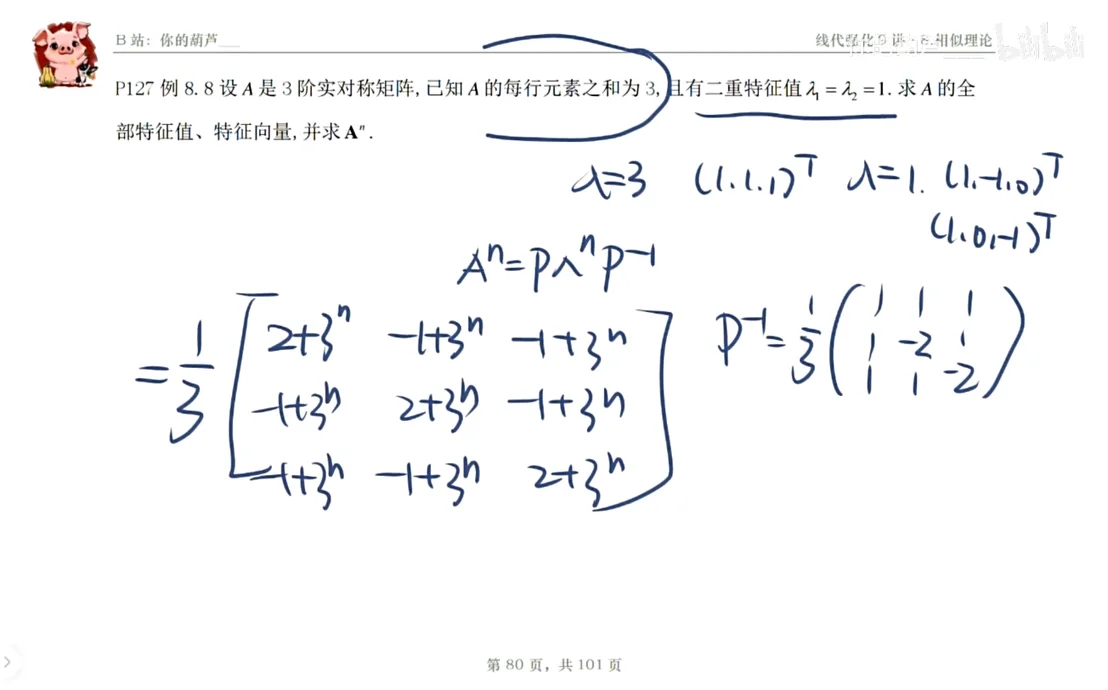 B 站：你的葫芦__
线代强化9讲：8.相似理论
bilibili
P127 例 8.8 设 A 是 3 阶实对称矩阵，已知 A 的每行元素之和为 3，且有二重特征值 λ₁ = λ₂ = 1. 求 A 的全
部特征值、特征向量，并求 Aⁿ.
λ=3 (1,1,1)ᵀ λ=1. (1,-1,0)ᵀ
(1,0,-1)ᵀ
Aⁿ=PΛⁿP⁻¹
2+3ⁿ -1+3ⁿ -1+3ⁿ
= 1/3 [ -1+3ⁿ 2+3ⁿ -1+3ⁿ ]
-1+3ⁿ -1+3ⁿ 2+3ⁿ
1 1 1
P⁻¹= 1/3 ( 1 -2 1 )
1 1 -2
第 80 页，共 101 页